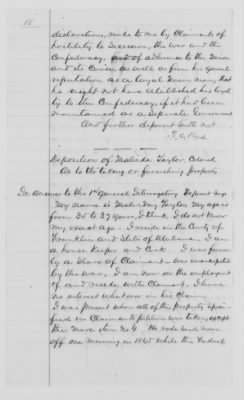 18
declarations, made to me by Claimant of
hostility to Secession, the war and the
Confederacy, and of adherence to the Union
and its Cause, as well as from his general
reputation as a loyal Union man, that
he might not have established his loyalty
by to the Confederacy, if it had been
maintained as a separate Government
And further deponent saith not
Deposition of Malinda Taylor, Colored
As to the taking or furnishing property
In answer to the 1st General Interrogatory Deponent says
My name is Malinda Taylor My age is
from 35 to 37 years, I think. I do not know
my exact age. I reside in the County of
Franklin and State of Alabama. I am
a house Keeper and Cook. I was formerly
a Slave of Claimant. was emancipated
by the war, I am now in the employment
of and reside with Claimant, I have
no interest whatever in his Claim,
I was present when all of the property specified
in Claimants petition was taken, except
the Mare item No 4. He rode said mare
off one morning in 1865 while the Federal